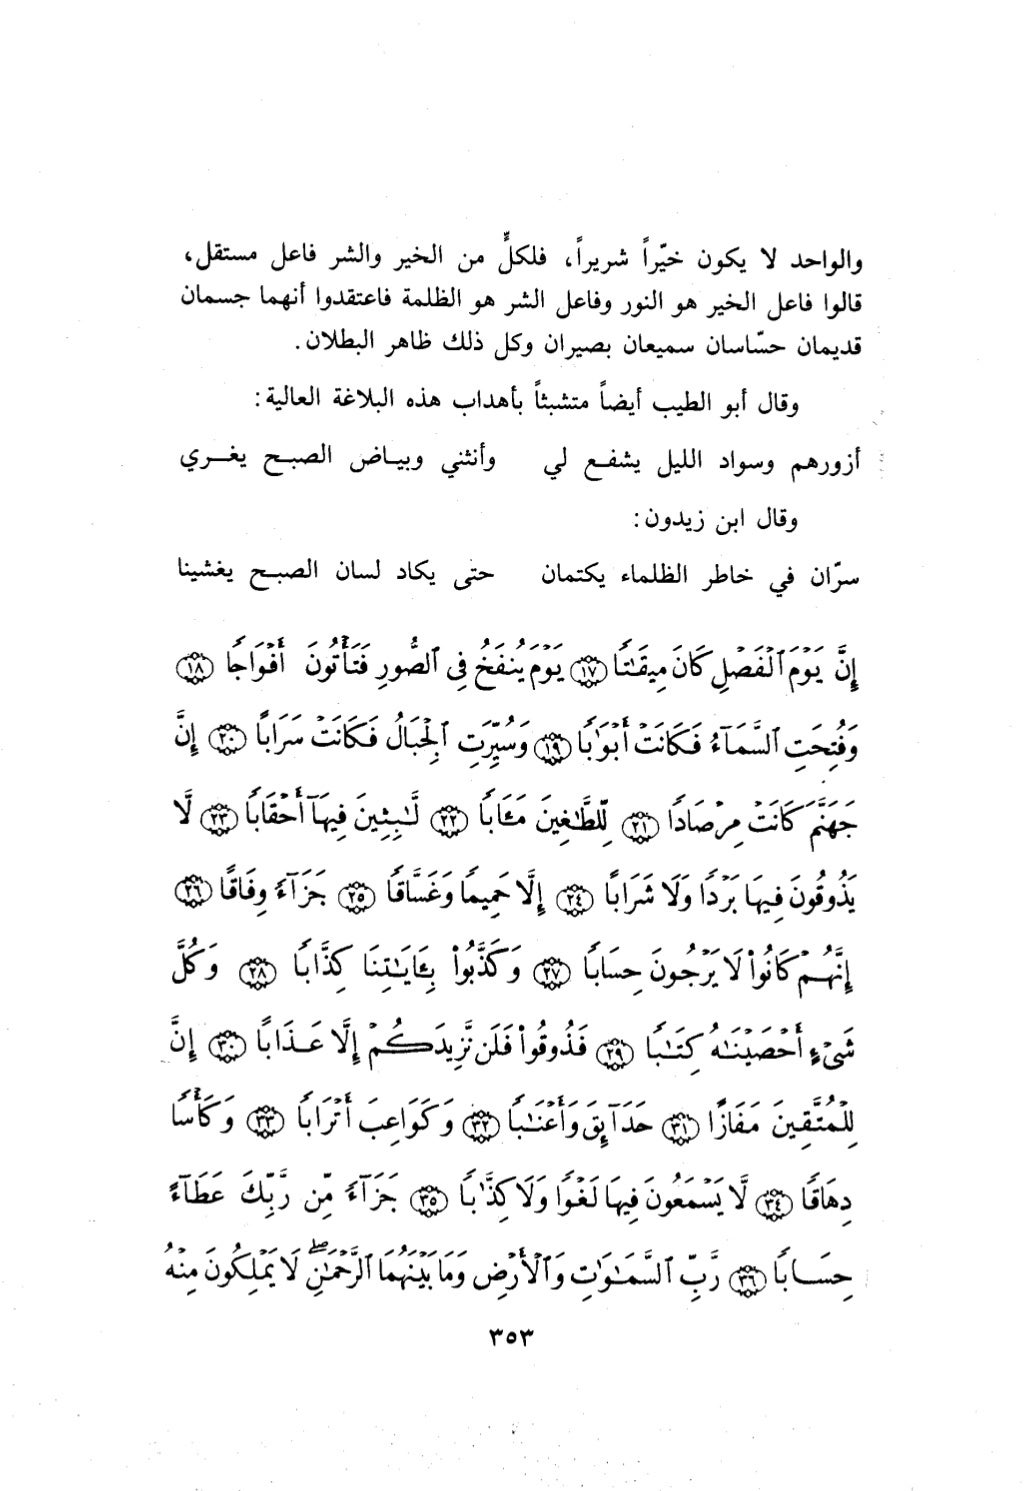 والواحد لا يكون خيّراً شريراً، فلكلٍّ من الخير والشر فاعل مستقل،
قالوا فاعل الخير هو النور وفاعل الشر هو الظلمة فاعتقدوا أنهما جسمان
قديمان حسّاسان سميعان بصيران وكل ذلك ظاهر البطلان.
وقال أبو الطيب أيضاً متشبثاً بأهداب هذه البلاغة العالية:
أزورهم وسواد الليل يشفع لي وأنثني وبياض الصبح يغري
وقال ابن زيدون:
سرّان في خاطر الظلماء يكتمان حتى يكاد لسان الصبح يغشينا
إِنَّ يَوْمَ ٱلْفَصْلِ كَانَ مِيقَٰتًا ﴿١٧﴾ يَوْمَ يُنفَخُ فِى ٱلصُّورِ فَتَأْتُونَ أَفْوَاجًا ﴿١٨﴾
وَفُتِحَتِ ٱلسَّمَآءُ فَكَانَتْ أَبْوَٰبًا ﴿١٩﴾ وَسُيِّرَتِ ٱلْجِبَالُ فَكَانَتْ سَرَابًا ﴿٢٠﴾ إِنَّ
جَهَنَّمَ كَانَتْ مِرْصَادًا ﴿٢١﴾ لِّلطَّٰغِينَ مَـَٔابًا ﴿٢٢﴾ لَّٰبِثِينَ فِيهَآ أَحْقَابًا ﴿٢٣﴾ لَّا
يَذُوقُونَ فِيهَا بَرْدًا وَلَا شَرَابًا ﴿٢٤﴾ إِلَّا حَمِيمًا وَغَسَّاقًا ﴿٢٥﴾ جَزَآءً وِفَاقًا ﴿٢٦﴾
إِنَّهُمْ كَانُوا۟ لَا يَرْجُونَ حِسَابًا ﴿٢٧﴾ وَكَذَّبُوا۟ بِـَٔايَٰتِنَا كِذَّابًا ﴿٢٨﴾ وَكُلَّ
شَىْءٍ أَحْصَيْنَٰهُ كِتَٰبًا ﴿٢٩﴾ فَذُوقُوا۟ فَلَن نَّزِيدَكُمْ إِلَّا عَذَابًا ﴿٣٠﴾ إِنَّ
لِلْمُتَّقِينَ مَفَازًا ﴿٣١﴾ حَدَآئِقَ وَأَعْنَٰبًا ﴿٣٢﴾ وَكَوَاعِبَ أَتْرَابًا ﴿٣٣﴾ وَكَأْسًا
دِهَاقًا ﴿٣٤﴾ لَّا يَسْمَعُونَ فِيهَا لَغْوًا وَلَا كِذَّٰبًا ﴿٣٥﴾ جَزَآءً مِّن رَّبِّكَ عَطَآءً
حِسَابًا ﴿٣٦﴾ رَّبِّ ٱلسَّمَٰوَٰتِ وَٱلْأَرْضِ وَمَا بَيْنَهُمَا ٱلرَّحْمَٰنِ ۖ لَا يَمْلِكُونَ مِنْهُ
٣٥٣